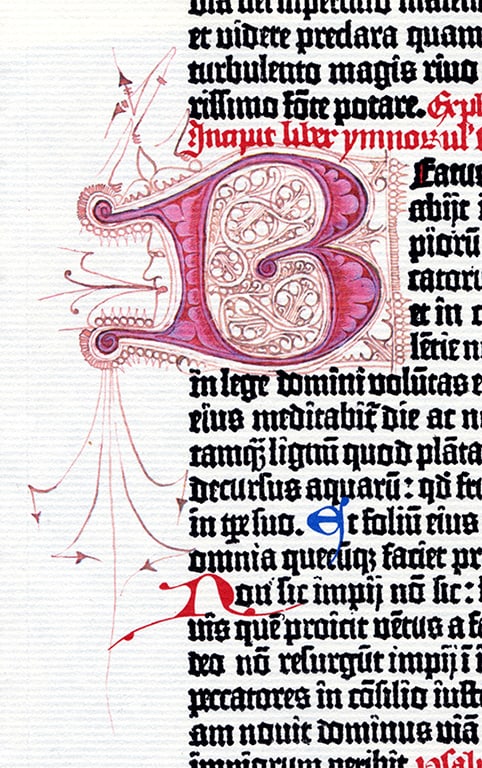 et videre preclara quam
turbulento magis rivo
rissimo fōte potare. Expl
Incipit liber ymnoꝝ ul'
Beatus
abijt i
piorū
catoru
et in c
lētie n
in lege domini volūtas e
eius meditabit̄ die ac n
tamqꝫ lignū quod plāta
decursus aquarū: qd fru
in tpe suo. Et foliū eius
omnia quecūqꝫ faciet pr
Non sic impij nō sic:
vis quē proicit vētus a fa
deo nō resurgūt impij ī i
peccatores in cōsilio iust
am novit dominus viā
impiorum peribit psal